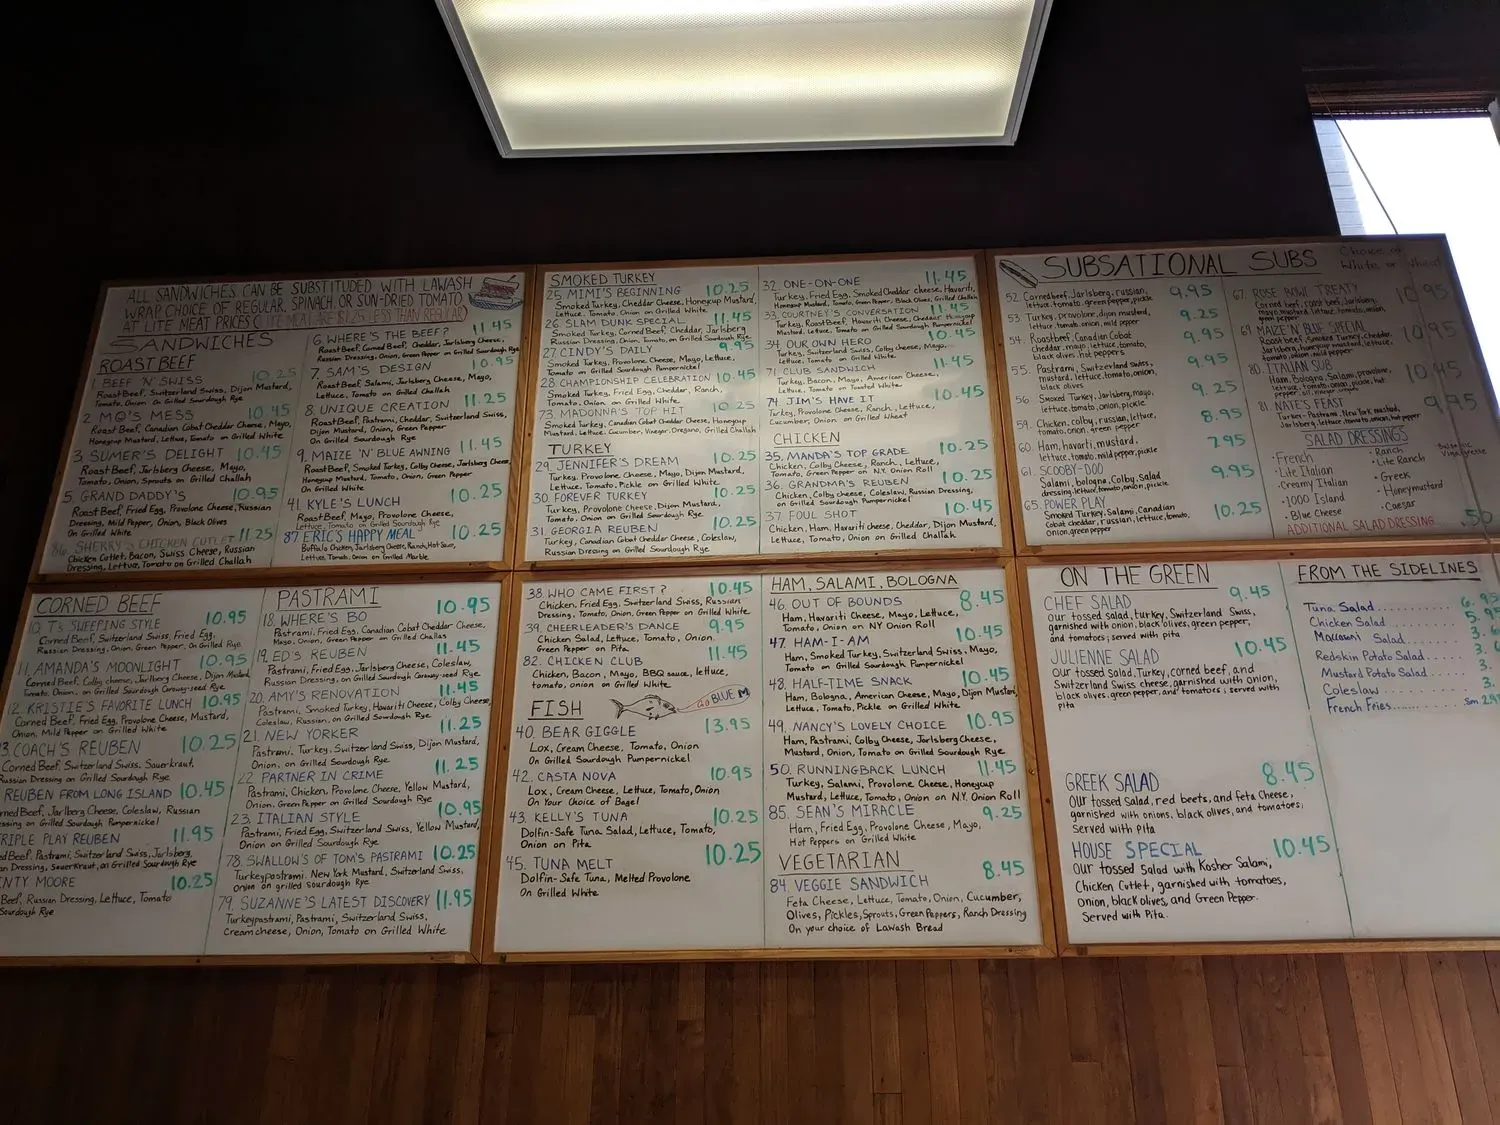 ALL SANDWICHES CAN BE SUBSTITUTED WITH LAWASH
WRAP CHOICE OF REGULAR, SPINACH, OR SUN-DRIED TOMATO,
AT LITE MEAT PRICES (LITE MEAL ARE $1.25 LESS THAN REGULAR)
SANDWICHES
ROAST BEEF
1. BEEF 'N' SWISS 10.25
Roast Beef, Switzerland Swiss, Dijon Mustard,
Tomato, Onion on Grilled Sourdough Rye
2. MQ'S MESS 10.45
Roast Beef, Canadian Cobat Cheddar Cheese, Mayo,
Honeycup Mustard, Lettuce, Tomato on Grilled White
3. SUMER'S DELIGHT 10.45
Roast Beef, Jarlsberg Cheese, Mayo,
Tomato, Onion, Sprouts on Grilled Challah
5. GRAND DADDY'S 10.95
Roast Beef, Fried Egg, Provolone Cheese, Russian
Dressing, Mild Pepper, Onion, Black Olives
On Grilled White
86. SHERRY'S CHICKEN CUTLET 11.25
Chicken Cutlet, Bacon, Swiss Cheese, Russian
Dressing, Lettuce, Tomato on Grilled Challah
6. WHERE'S THE BEEF? 11.45
Roast Beef, Corned Beef, Cheddar, Jarlsberg Cheese,
Russian Dressing, Onion, Green Pepper on Grilled Sourdough Rye
7. SAM'S DESIGN 10.95
Roast Beef, Salami, Jarlsberg Cheese, Mayo,
Lettuce, Tomato on Grilled Challah
8. UNIQUE CREATION 11.25
Roast Beef, Pastrami, Cheddar, Switzerland Swiss,
Dijon Mustard, Onion, Green Pepper
On Grilled Sourdough Rye
9. MAIZE 'N' BLUE AWNING 11.45
Roast Beef, Smoked Turkey, Colby Cheese, Jarlsberg Cheese,
Honeycup Mustard, Tomato, Onion, Green Pepper
On Grilled White
41. KYLE'S LUNCH 10.25
Roast Beef, Mayo, Provolone Cheese,
Lettuce, Tomato on Grilled Sourdough Rye
87 ERIC'S HAPPY MEAL 10.25
Buffalo Chicken, Jarlsberg Cheese, Ranch, Hot Sauce,
Lettuce, Tomato, Onion on Grilled Marble
SMOKED TURKEY
25. MIMI'S BEGINNING 10.25
Smoked Turkey, Cheddar Cheese, Honeycup Mustard,
Lettuce, Tomato, Onion on Grilled White
26. SLAM DUNK SPECIAL 11.45
Smoked Turkey, Corned Beef, Cheddar, Jarlsberg
Russian Dressing, Onion, Tomato, on Grilled Sourdough Rye
27. CINDY'S DAILY 9.95
Smoked Turkey, Provolone Cheese, Mayo, Lettuce,
Tomato on Grilled Sourdough Pumpernickel
28. CHAMPIONSHIP CELEBRATION 10.45
Smoked Turkey, Fried Egg, Cheddar, Ranch,
Tomato, Onion, on Grilled White
73. MADONNA'S TOP HIT 10.25
Smoked Turkey, Canadian Cobat Cheddar Cheese, Honeycup
Mustard, Lettuce, Cucumber, Vinegar, Oregano, Grilled Challah
TURKEY
29. JENNIFER'S DREAM 10.25
Turkey, Provolone Cheese, Mayo, Dijon Mustard,
Lettuce, Tomato, Pickle on Grilled White
30. FOREVER TURKEY 10.25
Turkey, Provolone Cheese, Dijon Mustard,
Tomato, Onion on Grilled Sourdough Rye
31. GEORGIA REUBEN 10.25
Turkey, Canadian Cobat Cheddar Cheese, Coleslaw,
Russian Dressing on Grilled Sourdough Rye
32 ONE-ON-ONE 11.45
Turkey, Fried Egg, Smoked Cheddar Cheese, Havarti,
Honeycup Mustard, Tomato, Green Pepper, Black Olives, Grilled Challah
33. COURTNEY'S CONVERSATION 11.45
Turkey, Roast Beef, Havarti Cheese, Cheddar, Honeycup
Mustard, Lettuce, Tomato on Grilled Sourdough Pumpernickel
34 OUR OWN HERO 10.45
Turkey, Switzerland Swiss, Colby Cheese, Mayo,
Lettuce, Tomato on Grilled White
71. CLUB SANDWICH 11.45
Turkey, Bacon, Mayo, American Cheese,
Lettuce, Tomato on Toasted White
74 JIM'S HAVE IT 10.45
Turkey, Provolone Cheese, Ranch, Lettuce,
Cucumber, Onion on Grilled Wheat
CHICKEN
35. MANDA'S TOP GRADE 10.25
Chicken, Colby Cheese, Ranch, Lettuce,
Tomato, Green Pepper on N.Y. Onion Roll
36. GRANDMA'S REUBEN 10.25
Chicken, Colby Cheese, Coleslaw, Russian Dressing,
on Grilled Sourdough Pumpernickel
37. FOUL SHOT 10.45
Chicken, Ham, Havarti cheese, Cheddar, Dijon Mustard,
Lettuce, Tomato, Onion on Grilled Challah
SUBSATIONAL SUBS
Choice of
White or Wheat
52. Corned beef, Jarlsberg, russian, 9.95
lettuce, tomato, green pepper, pickle
53. Turkey, provolone, dijon mustard, 9.25
lettuce, tomato, onion, mild pepper
54. Roast beef, Canadian Cobat 9.95
cheddar, mayo, lettuce, tomato,
black olives, hot peppers
55. Pastrami, Switzerland swiss, 9.95
mustard, lettuce, tomato, onion,
black olives
56 Smoked Turkey, Jarlsberg, mayo, 9.25
lettuce, tomato, onion, pickle
59. Chicken, colby, russian, lettuce, 8.95
tomato, onion, green pepper
60. Ham, havarti, mustard, 7.95
lettuce, tomato, mild pepper, pickle
61. SCOOBY-DOO 9.95
Salami, bologna, Colby, Salad
dressing, lettuce, tomato, onion, pickle
65. POWER PLAY 10.25
Smoked Turkey, Salami, Canadian
Cobat cheddar, russian, lettuce, tomato,
onion, green pepper
67. ROSE BOWL TREATY 10.95
Corned beef, roast beef, Jarlsberg,
mayo, mustard, lettuce, tomato, onion,
green pepper
69. MAIZE 'N' BLUE SPECIAL 10.95
Roast beef, Smoked Turkey, cheddar,
Jarlsberg, honeycup mustard, lettuce,
tomato, onion, mild pepper
80. ITALIAN SUB 10.45
Ham, Bologna, Salami, provolone,
lettuce, tomato, onion, pickle, hot
pepper, oil, vinegar
81. NATE'S FEAST 9.95
Turkey, Pastrami, New York mustard,
lettuce, tomato, onion, hot pepper
SALAD DRESSINGS
·French
·Lite Italian
·Creamy Italian
·1000 Island
·Blue Cheese
·Ranch
·Lite Ranch
·Greek
·Honeymustard
·Caesar
Balsamic
Vinaigrette
ADDITIONAL SALAD DRESSING .50
CORNED BEEF
10. T's SLEEPING STYLE 10.95
Corned Beef, Switzerland Swiss, Fried Egg,
Russian Dressing, Onion, Green Pepper on Grilled Rye
11. AMANDA'S MOONLIGHT 10.95
Corned Beef, Colby cheese, Jarlsberg Cheese, Dijon Mustard
Tomato, Onion, on Grilled Sourdough Caraway-seed Rye
12. KRISTIE'S FAVORITE LUNCH 10.95
Corned Beef, Fried Egg, Provolone Cheese, Mustard,
Onion, Mild Pepper on Grilled White
13. COACH'S REUBEN 10.25
Corned Beef, Switzerland Swiss, Sauerkraut,
Russian Dressing on Grilled Sourdough Rye
REUBEN FROM LONG ISLAND 10.45
Corned Beef, Jarlberg Cheese, Coleslaw, Russian
Dressing on Grilled Sourdough Pumpernickel
TRIPLE PLAY REUBEN 11.95
Beef, Pastrami, Switzerland Swiss, Jarlsberg,
Dressing, Sauerkraut, on Grilled Sourdough Rye
NTY MOORE 10.25
Beef, Russian Dressing, Lettuce, Tomato
Sourdough Rye
PASTRAMI
18. WHERE'S BO 10.95
Pastrami, Fried Egg, Canadian Cobat Cheddar Cheese,
Mayo, Onion, Green Pepper on Grilled Challah
19. ED'S REUBEN 11.45
Pastrami, Fried Egg, Jarlsberg Cheese, Coleslaw,
Russian Dressing, on Grilled Sourdough Caraway-seed Rye
20. AMY'S RENOVATION 11.45
Pastrami, Smoked Turkey, Havarti Cheese, Colby Cheese,
Coleslaw, Russian, on Grilled Sourdough Rye
21. NEW YORKER 11.25
Pastrami, Turkey, Switzerland Swiss, Dijon Mustard,
Onion, on Grilled Sourdough Rye
22 PARTNER IN CRIME 11.25
Pastrami, Chicken, Provolone Cheese, Yellow Mustard,
Onion, Green Pepper on Grilled Sourdough Rye
23. ITALIAN STYLE 10.95
Pastrami, Fried Egg, Switzerland Swiss, Yellow Mustard,
Onion on Grilled Sourdough Rye
78. SWALLOW'S OF TOM'S PASTRAMI 10.25
Turkeypastrami, New York Mustard, Switzerland Swiss,
onion on grilled Sourdough Rye
79. SUZANNE'S LATEST DISCOVERY 11.95
Turkeypastrami, Pastrami, Switzerland Swiss,
Creamcheese, Onion, Tomato on Grilled White
38. WHO CAME FIRST? 10.45
Chicken, Fried Egg, Switzerland Swiss, Russian
Dressing, Tomato, Onion, Green Peppers on Grilled White
39. CHEERLEADER'S DANCE 9.95
Chicken Salad, Lettuce, Tomato, Onion
Green Pepper on Pita
82. CHICKEN CLUB 11.45
Chicken, Bacon, Mayo, BBQ sauce, lettuce,
tomato, onion on Grilled White
FISH
GO BLUE M
40. BEAR GIGGLE 13.95
Lox, Cream Cheese, Tomato, Onion
On Grilled Sourdough Pumpernickel
42. CASTA NOVA 10.95
Lox, Cream Cheese, Lettuce, Tomato, Onion
On Your Choice of Bagel
43. KELLY'S TUNA 10.25
Dolfin-Safe Tuna Salad, Lettuce, Tomato,
Onion on Pita
45. TUNA MELT 10.25
Dolfin-Safe Tuna, Melted Provolone
On Grilled White
HAM, SALAMI, BOLOGNA
46. OUT OF BOUNDS 8.45
Ham, Havarti Cheese, Mayo, Lettuce,
Tomato, Onion on NY Onion Roll
47. HAM-I-AM 10.45
Ham, Smoked Turkey, Switzerland Swiss, Mayo,
Tomato on Grilled Sourdough Pumpernickel
48. HALF-TIME SNACK 10.45
Ham, Bologna, American Cheese, Mayo, Dijon Mustard,
Lettuce, Tomato, Pickle on Grilled White
49. NANCY'S LOVELY CHOICE 10.95
Ham, Pastrami, Colby Cheese, Jarlsberg Cheese,
Mustard, Onion, Tomato on Grilled Sourdough Rye
50. RUNNINGBACK LUNCH 11.45
Turkey, Salami, Provolone Cheese, Honeycup
Mustard, Lettuce, Tomato, Onion on N.Y. Onion Roll
85. SEAN'S MIRACLE 9.25
Ham, Fried Egg, Provolone Cheese, Mayo,
Hot Peppers on Grilled White
VEGETARIAN
84. VEGGIE SANDWICH 8.45
Feta Cheese, Lettuce, Tomato, Onion, Cucumber,
Olives, Pickles, Sprouts, Green Peppers, Ranch Dressing
On your choice of Lawash Bread
ON THE GREEN
CHEF SALAD 9.45
Our tossed salad, turkey, Switzerland Swiss,
garnished with onion, black olives, green pepper,
and tomatoes; served with pita
JULIENNE SALAD 10.45
Our tossed Salad, Turkey, corned beef, and
Switzerland Swiss cheese, garnished with onion,
black olives, green pepper, and tomatoes; served with
pita
GREEK SALAD 8.45
Our tossed salad, red beets, and feta Cheese,
garnished with onions, black olives, and tomatoes;
Served with Pita
HOUSE SPECIAL 10.45
Our tossed Salad with Kosher Salami,
Chicken Cutlet, garnished with tomatoes,
onion, black olives, and Green Pepper.
Served with Pita.
FROM THE SIDELINES
Tuna Salad 6.95
Chicken Salad 5.95
Macaroni Salad 3.
Redskin Potato Salad 3.
Mustard Potato Salad 3.
Coleslaw 3.
French Fries sm 2.95